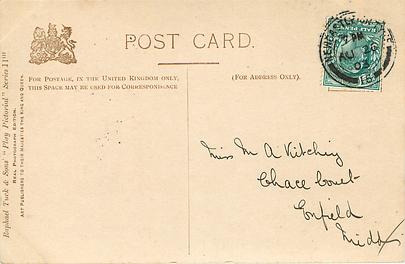 POST CARD.
FOR POSTAGE, IN THE UNITED KINGDOM ONLY,
THIS SPACE MAY BE USED FOR CORRESPONDENCE
(FOR ADDRESS ONLY).
HALF PENNY
Miss M A Kitching
Chace Court
Enfield
Middx
Raphael Tuck & Sons' "Play Pictorial" Series 11
REAL PHOTOGRAPH EDITION.
ART PUBLISHERS TO THEIR MAJESTIES THE KING AND QUEEN.